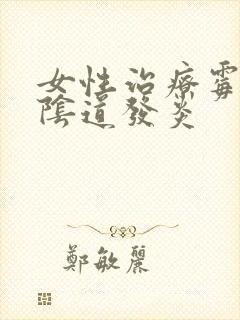 女性治療霉
陰道發炎
鄭敏麗